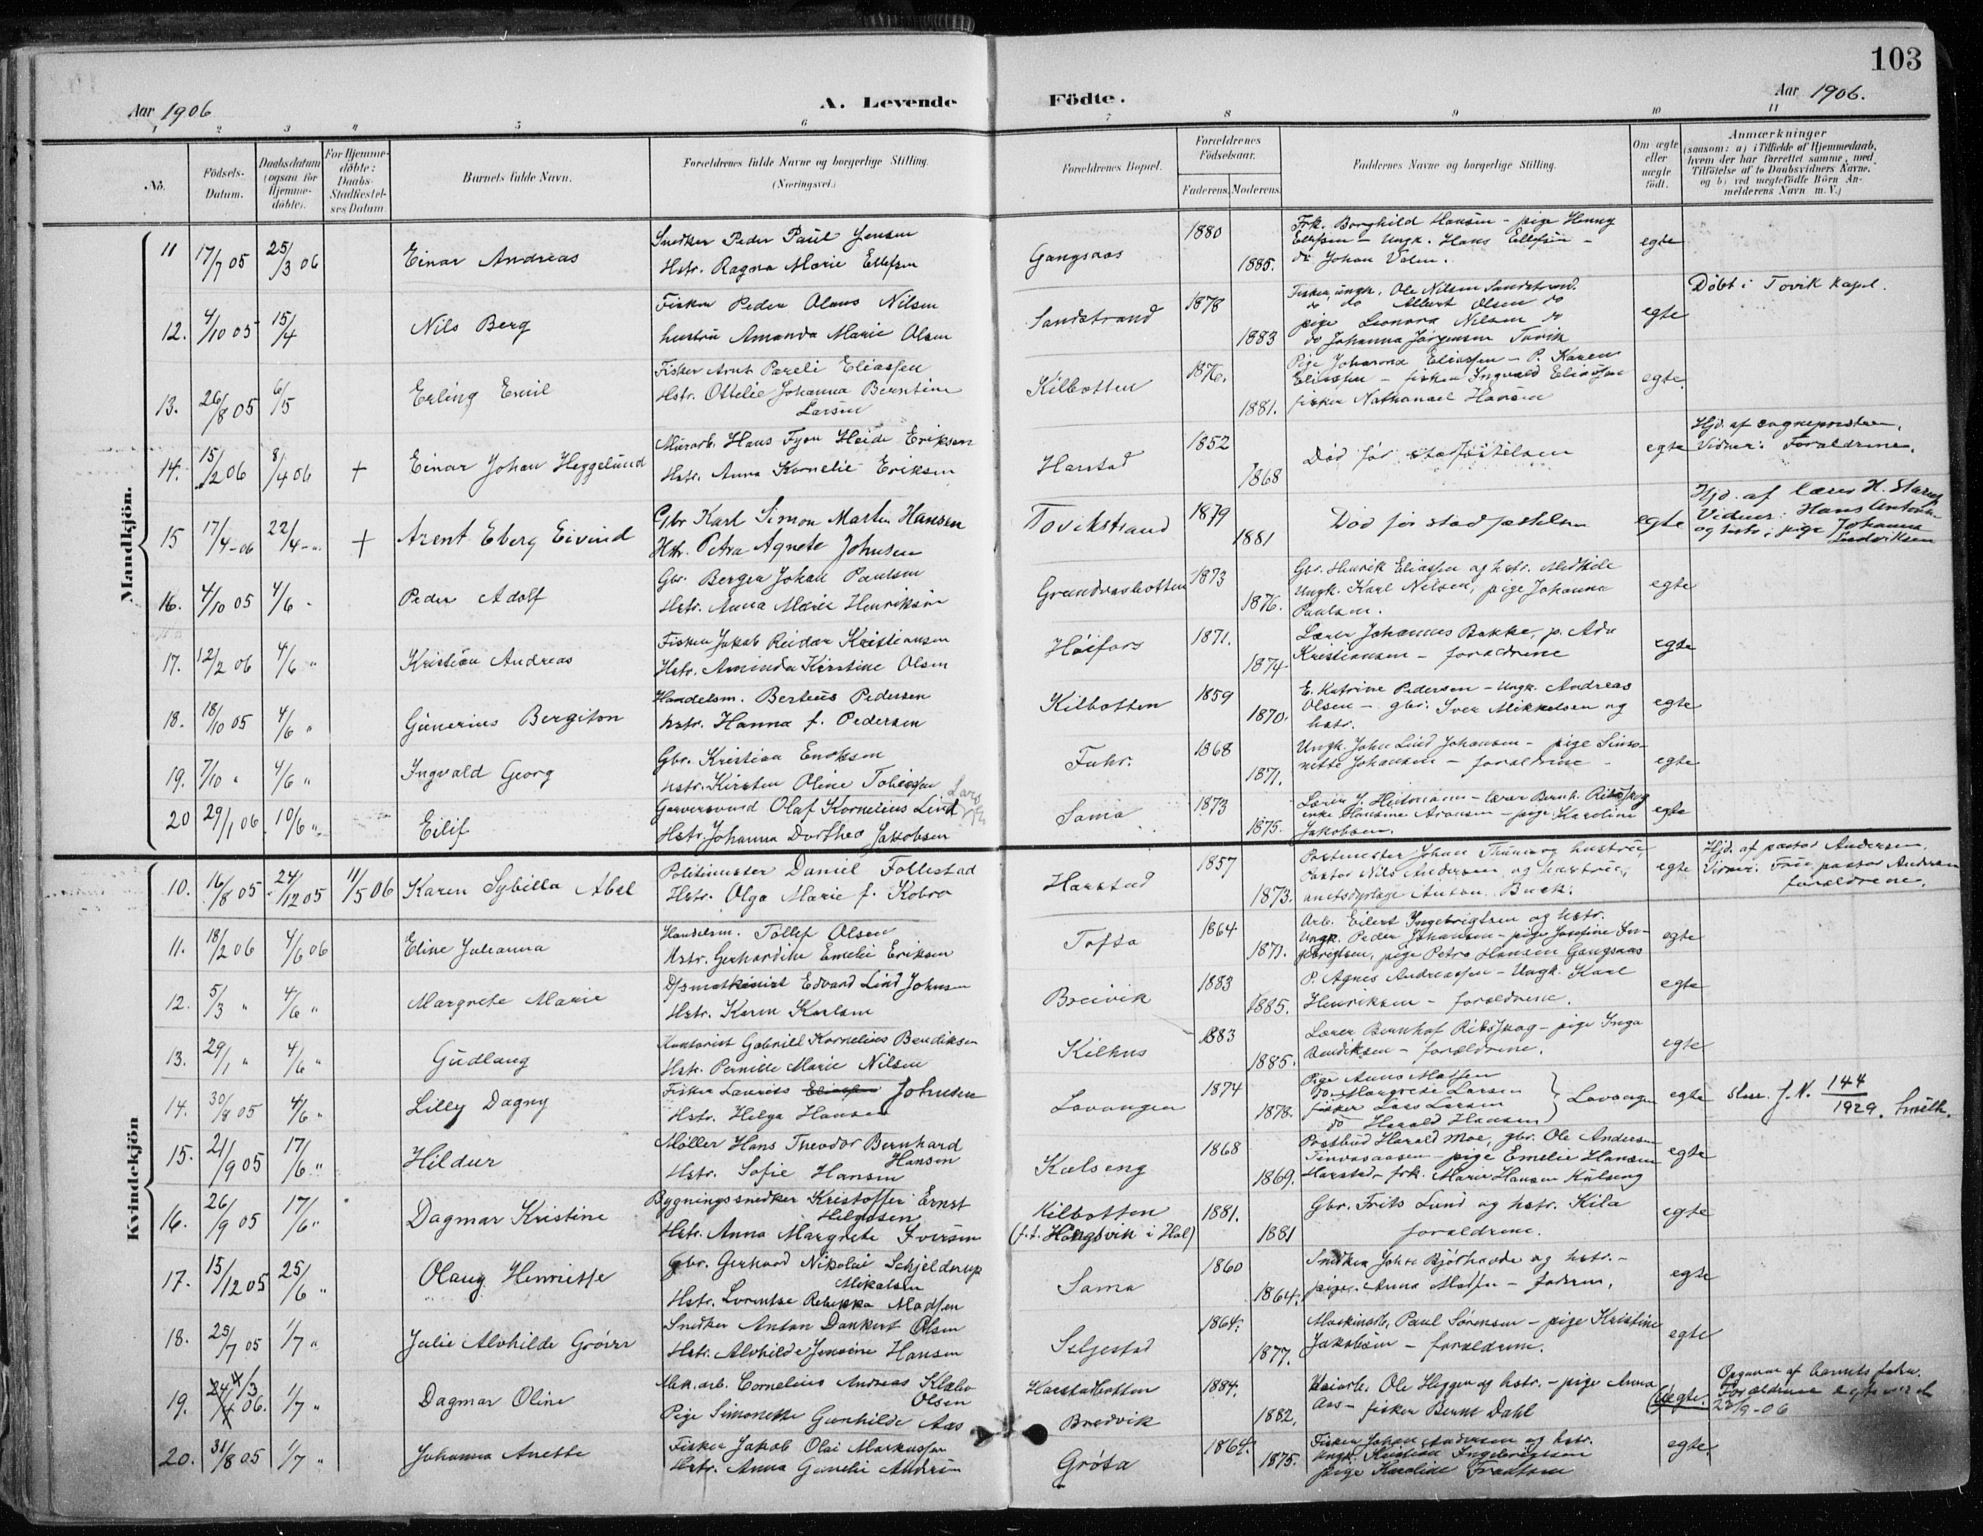 103
Aar 1906
A. Levende
Födte.
Aar 1906.
1 2 3 4 5 6 7 8 9 10 11
No.
Födsels-
Datum.
Daabsdatum
(ogsaa for
Hjemme-
döbte).
For Hjemme-
döbte:
Daabs-
Stadfæstel-
ses Datum
Barnets fulde Navn.
Forældrenes fulde Navne og borgerlige Stilling.
(Næringsvei.)
Forældrenes Bopæl.
Forældrenes
Födselsaar.
Faderens. Moderens.
Faddernes Navne og borgerlige Stilling.
Om ægte
eller
uægte
födt.
Anmærkninger
(saasom: a) i Tilfælde af Hjemmedaab,
hvem der har forrettet samme, med
Tilföielse af to Daabsvidners Navne,
og b) ved uægtefödte Börn An-
melderens Navn m. V.)
Mandkjön.
11 17/7 05 25/3 06 Einar Andreas
Snedker Peder Paul Jensen
Hstr. Ragna Marie Ellefsen
Gangsaas 1880 1885.
Frk. Borghild Hansen - pige Henny
Ellefsen - Ungk. Hans Ellefsen -
do Johan Valen.
egte
12. 4/10 05 15/4 Nils Berg
Fisker Peder Olaus Nilsen
hustru Amanda Marie Olsen
Sandstrand 1878 1883
Fisker, ungk. Ole Nilsen Sandstrand.
do do Albert Olsen do
pige Leonora Nilsen do
do Johanna Jørgensen Tovik
egte
Døbt i Tovik kapel.
13. 26/8 05 6/5 Erling Emil
Fisker Arnt Pareli Eliassen
Hstr. Ottelie Johanna Berntine
Larsen
Kilbotten 1876. 1881.
Pige Johanna Eliassen - P. Karen
Eliassen - fisker Ingvald Eliassen
fisker Nathanael Hansen
egte.
14. 15/2 06 8/4 06 + Einar Johan Heggelund
Murarb. Hans Fyen Heide Eriksen
Hstr. Anna Kornelie Eriksen
Harstad 1852 1868
Død før stadfæstelsen
egte
Hjd. af sognepresten.
Vidner: Forældrene.
15 17/4-06 22/4-" + Arent Eberg Eivind
Gbr Karl Simon Martin Hansen
Hstr. Petra Agnete Johnsen
Tovikstrand 1879 1881
Død før stadfæstelsen
egte
Hjd. af lærer H.
Vidner: Hans Anton
og hstr., pige Johanna
Ludviksen
16. 4/10 05 4/6 " Peder Adolf
Gbr. Berger Johan Paulsen
Hstr. Anna Marie Henriksen
Grundvasbotten 1873 1876.
Gbr. Henrik Eliassen og hstr. Medkile
Ungk. Karl Nilsen, pige Johanna
Paulsen.
egte
17. 12/2 06 4/6 " Kristian Andreas
Fisker Jakob Reidar Kristiansen
Hstr. Aminda Kirstine Olsen
Høifors 1871. 1874
Lærer Johannes Bakke, p. Ada
Kristiansen - forældrene
egte
18. 18/10 05 4/6 " Gunerius Bergiton
Handelsm. Berteus Pedersen
hstr. Hanna f. Pedersen
Kilbotten 1859 1870.
E. Katrine Pedersen - Ungk. Andreas
Olsen - gbr. Iver Mikkelsen og
hstr.
egte
19. 7/10 " 4/6 " Ingvald Georg
Gbr. Kristian Enoksen
hstr. Kirsten Oline Tobiassen
Fuhr. 1868 1871.
Ungk. John Lind Johansen - pige Simo-
nette Johansen - forældrene
egte
20 29/1 06 10/6 " Eilif
Garversvend Olaf Kornelius Lind
Hstr. Johanna Dorthea Jakobsen
Sama 1873 1875.
Lærer J. Heitmann - lærer Bernh. Ribsskog
enke Hansine Aronsen - pige Karoline
Jakobsen.
egte
Kvindekjön
10. 16/8 05 24/12 05 11/5 06 Karen Sybilla Abel
Politimester Daniel Follestad
Hstr. Olga Marie f. Kobro
Harstad 1857 1873.
Postmester Johan Thune og hustru,
Pastor Nils Andersen og hustru,
amtsdyrlæge Anton Buck.
egte
Hjd. af pastor Andersen.
Vidner: Frue pastor Andersen
forældrene.
11. 18/2 06 4/6 06 Eline Julianna
Handelsm. Tollef Olsen
Hstr. Gerhardine Emelie Eriksen
Tofta 1864 1871.
Arb. Eilert Ingebrigtsen og hstr.
Ungk. Peder Johansen - pige Josefine In-
gebrigtsen, pige Petra Hansen Gangsaas
egte
12. 5/3 " 4/6 " Margrete Marie
D/smaskinist Edvard Lind Johnsen
Hstr. Karen Karlsen
Breivik 1883 1885.
P. Agnes Andreassen - Ungk. Karl
Henriksen - forældrene.
egte
13. 29/1 " 4/6 " Gudlaug
Kontorist Gabriell Kornelius Bendiksen
Hstr. Pernille Marie Nilsen
Kilhus 1883 1885.
Lærer Bernhof Ribsskog - pige Inga
Bendiksen - forældrene.
egte
14. 30/8 05 4/6 " Lilly Dagny
Fisker Laurits Eliassen Johnsen
Hstr. Helga Hansen
Lavangen 1874 1878.
Pige Anna Matsen
do Margrete Larsen
fisker Lars Larsen
do Harald Hansen
Lavangen
egte
Skr. J. N. 144/1929. Smith.
15. 21/9 05 17/6 " Hildur
Møller Hans Theodor Bernhard
Hansen
Hstr. Sofie Hansen
Kulseng 1868 1869.
Postbud Harald Moe, gbr. Ole Andersen
Tinvasaasen - pige Emelie Hansen
Harstad - frk. Marie Hansen Kulseng
egte
16. 26/9 05 17/6 " Dagmar Kristine
Bygningssnedker Kristoffer Ernst
Helgesen
Hstr. Anna Margrete Iversen
Kilbotten
(f.t. Haugsvik i Hol)
1881. 1881
Gbr. Frits Lund og hstr. Kila
forældrene.
egte
17. 15/12 05 25/6 " Olaug Henriette
Gbr. Gerhard Nikolai Schjelderup
Mikalsen
Hstr. Lorentse Rebekka Madsen
Sama 1860 1864.
Snedker Johs Bjørhovde og hstr. -
piger. Anna Madsen - faderen.
egte
18. 25/7 05 1/7 " Julie Alvhilde Grøver
Snedker Anton Dankert Olsen
Hstr. Alvhilde Jensine Hansen
Seljestad 1864. 1877.
Maskinarb. Paul Sørensen - pige Kristine
Jakobsen - forældrene.
egte
19. 4/3 06. 1/7 " Dagmar Oline
Mek. arb. Cornelius Andreas Klæbo
Olsen
Pige Simonette Gunhilde Aas
Harstadbotten
Bredvik
1884. 1882.
Kaiarb. Ole Heggen og hstr. - pige Anna
Aas - fisker Bernt Dahl
Uegte.
Opgivne af barnets fader.
Forældrene egteviet
22/9-06
20. 31/8 05 1/7 " Johanna Anette
Fisker Jakob Olai Markussen
Hstr. Anna Gurelie Andersen
Grøta 1864. 1875.
Fisker Johan Andersen og hstr.
Ungk. Kristian Ingebrigtsen
pige Karoline Frantsen
egte